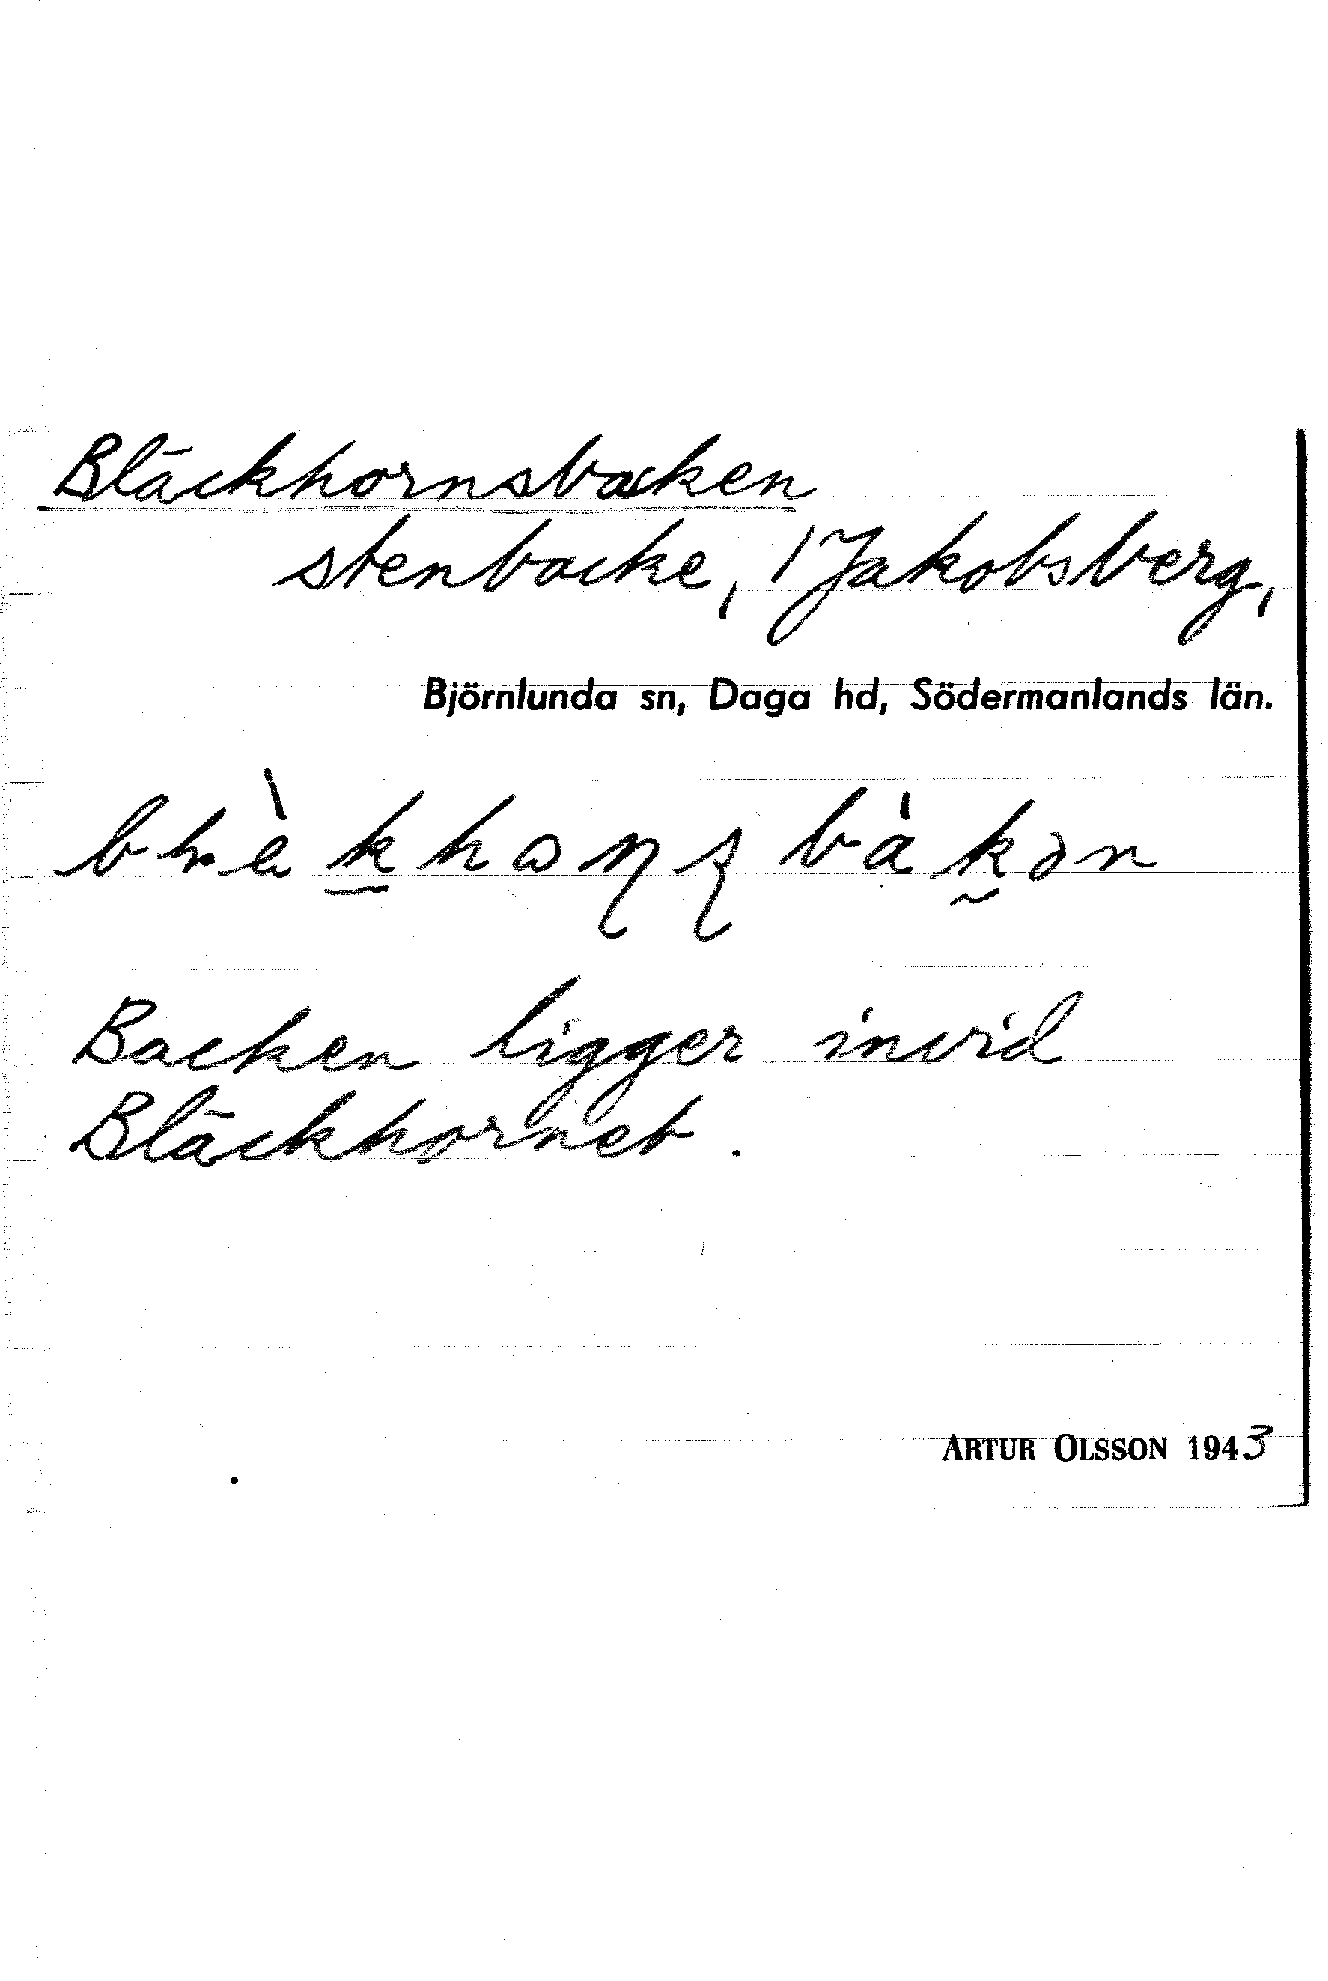 Bläckhornsbacken
stenbacke, 1 Jakobsberg,
Björnlunda sn, Daga hd, Södermanlands län.
Backen ligger invid
Bläckhornet.
ARTUR OLSSON 1943